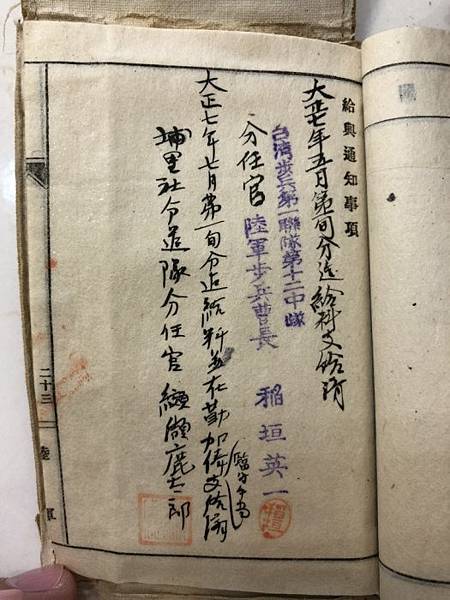 給與通知事項
大正七年五月第一旬分迄給料支給済
台湾歩兵第一聯隊第十二中隊
分任官 陸軍歩兵曹長 稲垣英一
大正七年七月第一旬分迄給料並在勤加俸支給済
埔里社分遣隊分任官
二十三
陸
軍